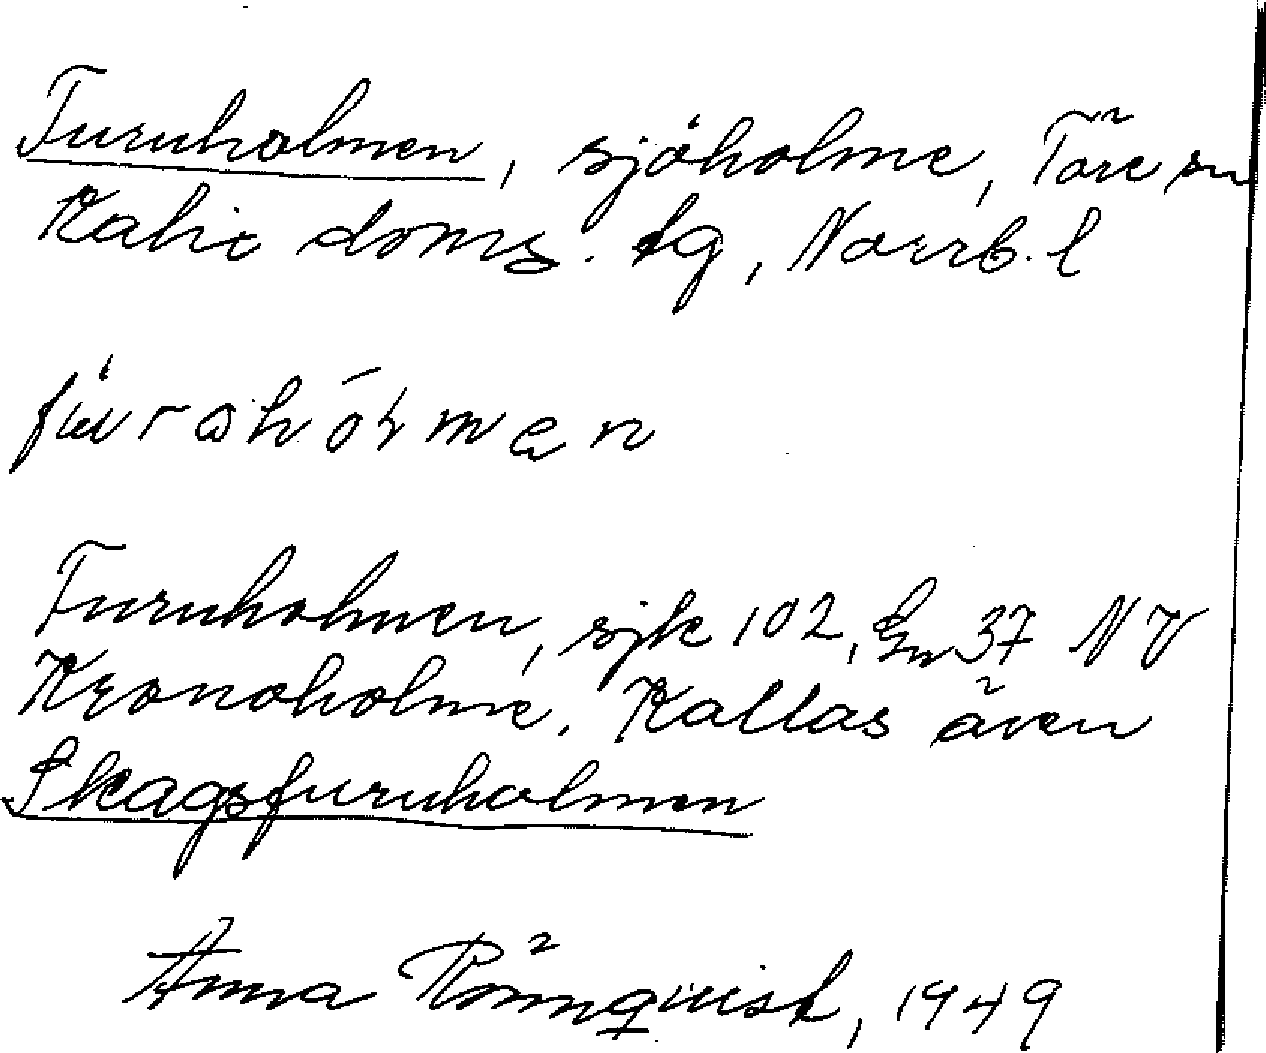 Furuholmen, sjöholme, Töre sn
Kalix doms. tg, Norrb. l

Furuholmen, sjk 102, 37 NV
Kronoholme. Kallas även
Skagsfuruholmen
Anna Rönnqvist, 1949